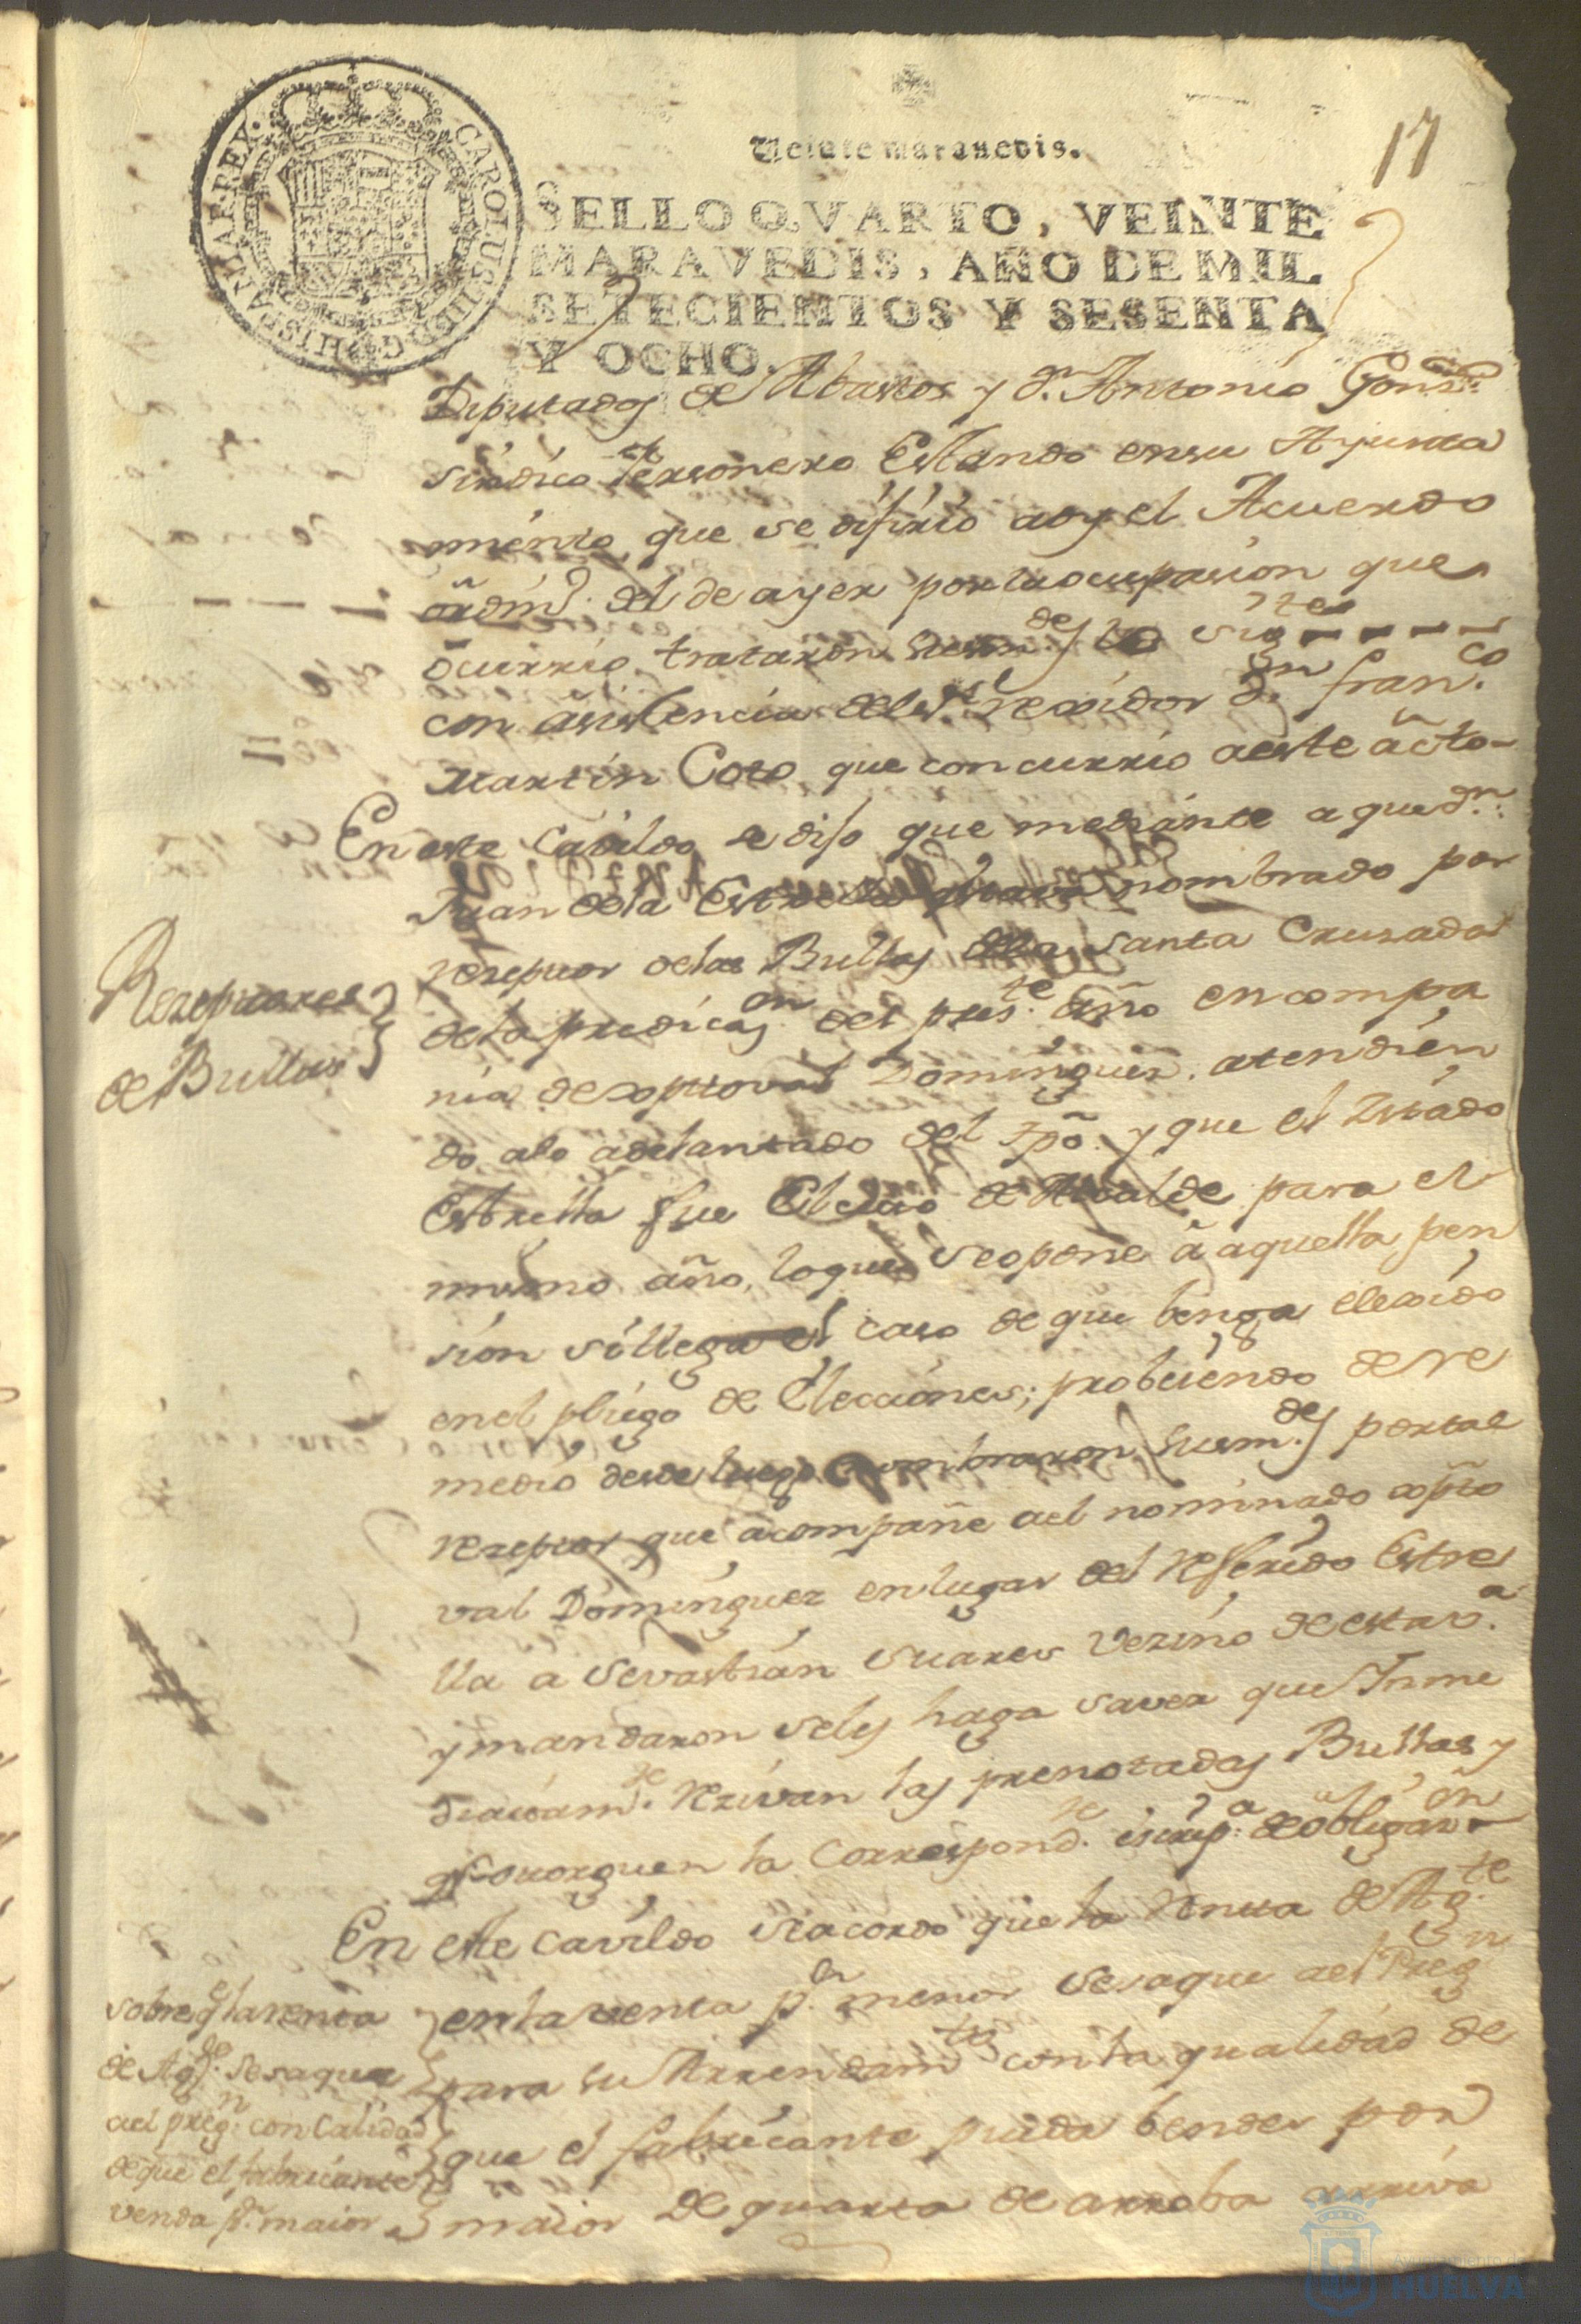 17
Veinte maravedis.
SELLO QVARTO, VEINTE
MARAVEDIS, AÑO DE MIL
SETECIENTOS Y SESENTA
Y OCHO.
CAROLUS III D G HISPANIAR REX
Diputados de Abastos y dn. Antonio Gonz.
sindico Personero Estando en su Ayunta
miento, que se difirio a oy el Acuerdo
ordin.o del de ayer por la ocupasion que
ocurrio, trataron sus m.des lo sig.te
con asistencia del s.r rexidor d.n fran.co
Martin Coto que concurrio a este acto
En este Cavildo se dijo que mediante a que d.n
Juan de la Estrella nombrado por
rezeptor de las Bullas de la Santa Crusada
de la predicaz.on del pres.te año en compa
nia de xptoval Dominguez, atendien
do a lo adelantado del tpo. y que el zitado
Estrella fue Electo de Alcalde para el
mismo año, lo que se opone a aquella pen
sion si llega el caso de que benga elexido
en el pliego de Elecciones; probeiendo de re
medio desde luego nombraron sus m.des por tal
rezeptor que acompañe al nominado xpto
val Dominguez en lugar del referido Estre
lla a Sevastian Suares Vezino de esta v.a
y mandaron se les haga saver que Inme
diatam.te rezivan las prenotadas Bullas y
otorguen la correspond.te escrip.a de obligaz.on
Rezeptores
de Bullas
En este cavildo se acordo que la Renta de Ag.te
en la venta p.r menor se saque al Preg.n
para su Arrendam.to con la qualidad de
que el fabricante pueda bender por
maior de quarta de arroba arriva
sobre q la renta
de Ag.te se saque
al preg.n con Calidad
de que el fabricante
venda p.r maior
Ayuntamiento de
HUELVA